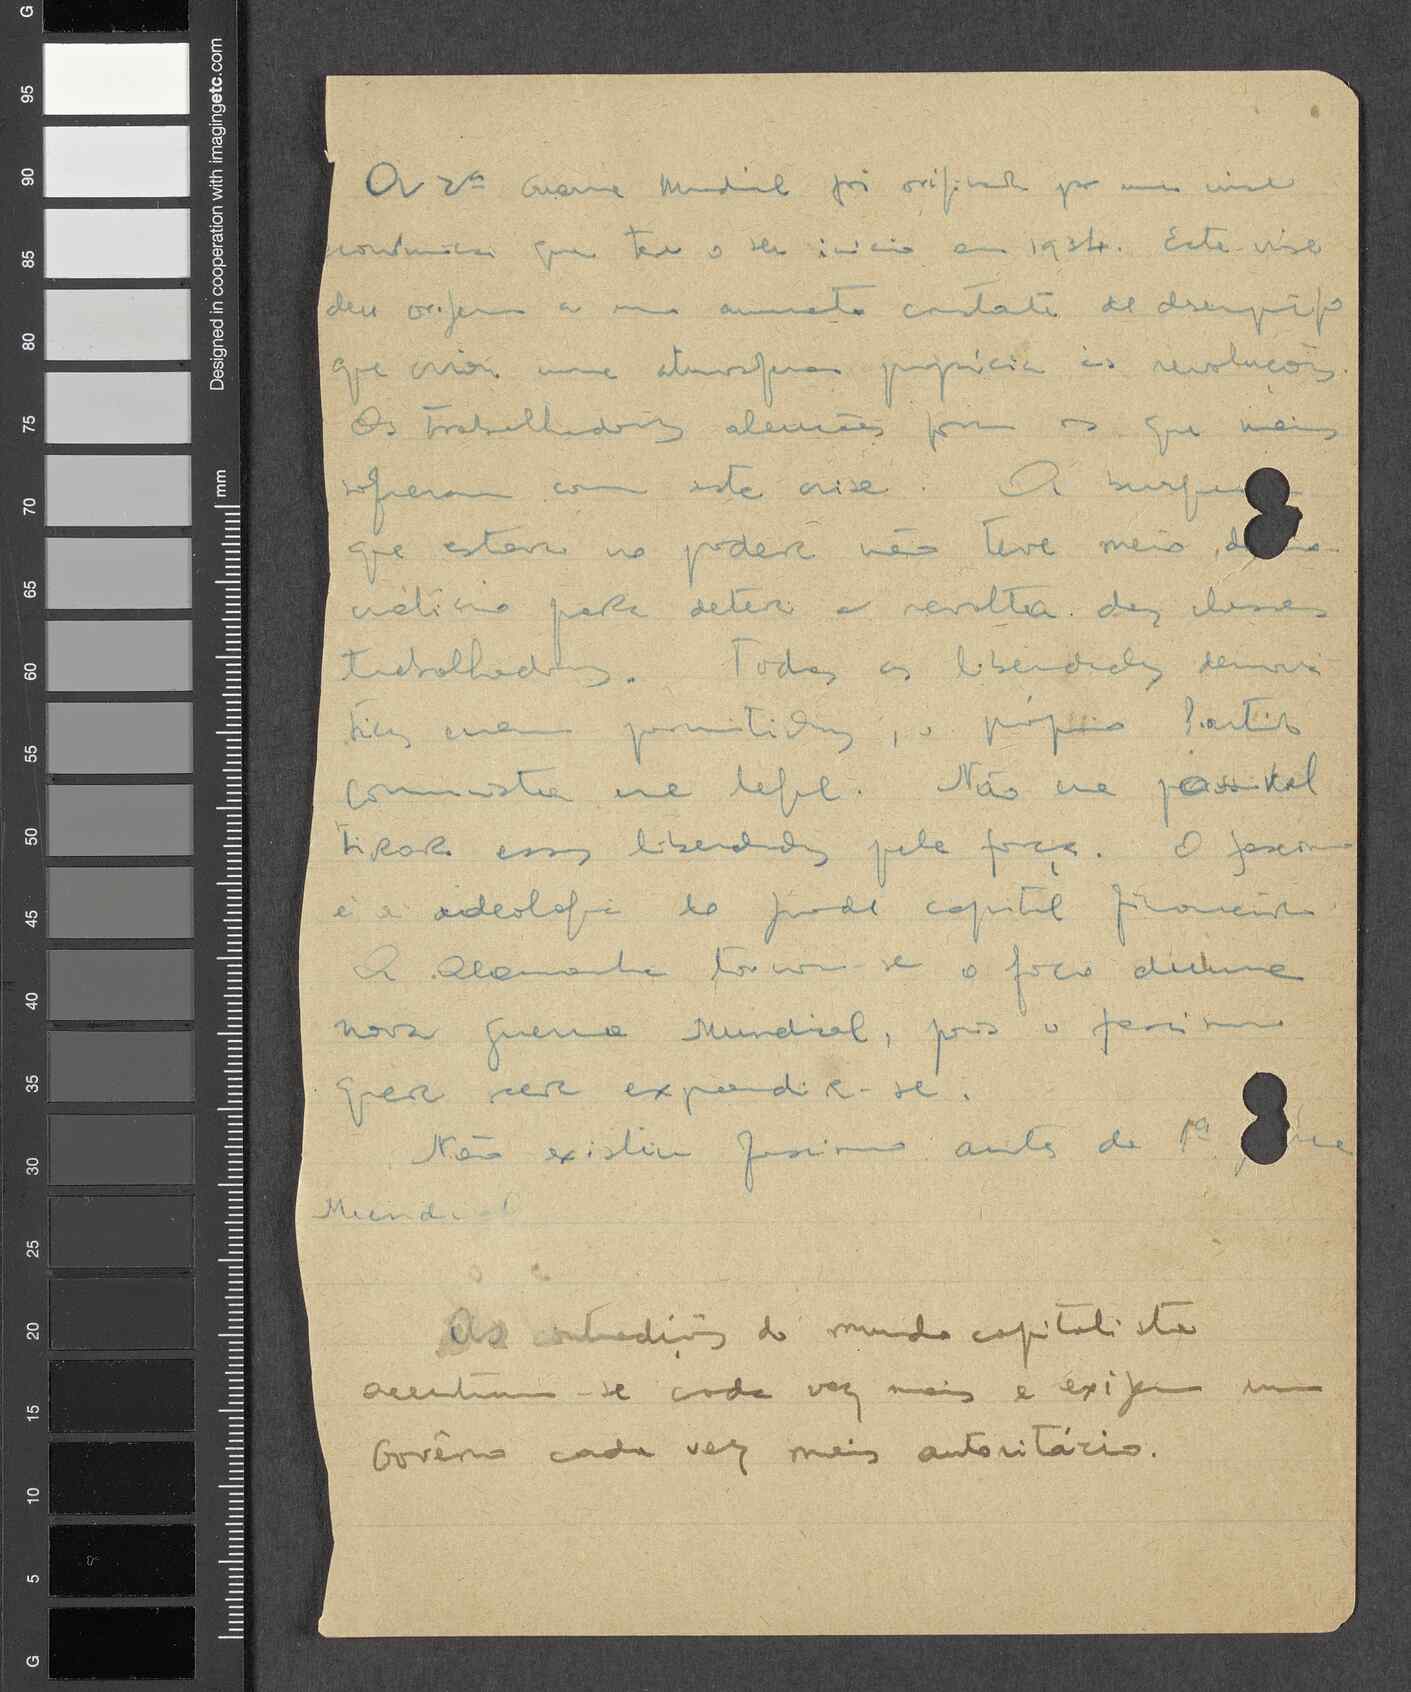 A 2ª Guerra Mundial foi originada por uma crise
económica que teve o seu inicio em 1934. Esta crise
deu origem a um aumento constante de desemprego
que criou uma atmosfera propícia às revoluções.
Os trabalhadores alemães foram os que mais
sofreram com esta crise. A burguesia
que estava no poder não teve meio demo-
crático para deter a revolta das classes
trabalhadoras. Todas as liberdades democrá
ticas eram permitidas, o próprio Partido
Comunista era legal. Não era possível
tirar essas liberdades pela força. O fascismo
é a ideologia do grande capital financeiro
A Alemanha tornou-se o foco duma
nova guerra Mundial, pois o fascismo
quer expandir-se.
Não existiu fascismo antes da 1ª Guerra
Mundial
As contradições do mundo capitalista
acentuam-se cada vez mais e exigem um
Govêrno cada vez mais autoritário.
G
95
90
85
80
75
70
65
60
55
50
45
40
35
30
25
20
15
10
5
G
mm
Designed in cooperation with imagingetc.com